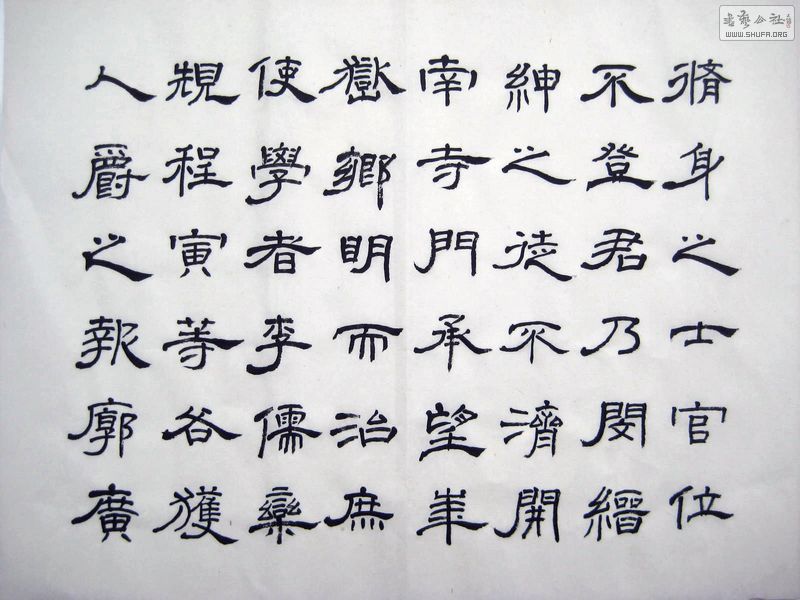 脩身之士官位
不登君乃閔縉
紳之徒不濟開
南寺門承望華
嶽鄉明而治庶
使學者李儒欒
規程寅等各獲
人爵之報廓廣
書藝公社
WWW.SHUFA.ORG